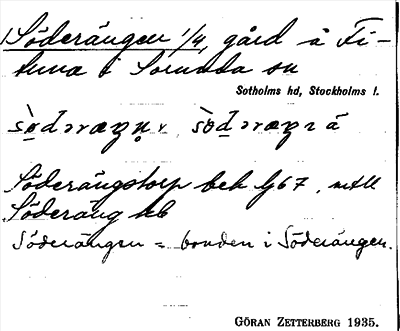 Söderängen 1/4, gård å Fi-
tuna i Sorunda sn
Sotholms hd, Stockholms l.
Söderängstorp beb Gj 67, mtll
Söderäng hb
Söderängen = bonden i Söderängen.
GÖRAN ZETTERBERG 1935.